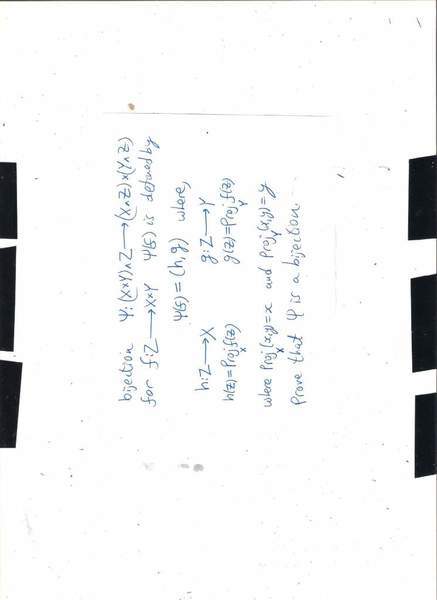 bijection Ψ:(X×Y)^Z⟶(X^Z)×(Y^Z)
for f:Z⟶X×Y Ψ(f) is defined by
Ψ(f)=(h,g) where,
h:Z⟶X g:Z⟶Y
h(z)=Proj_X f(z) g(z)=Proj_Y f(z)
where Proj_X(x,y)=x and Proj_Y(x,y)=y
Prove that Ψ is a bijection.